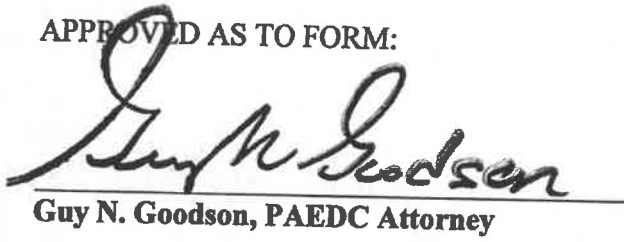 APPROVED AS TO FORM:
Guy N Goodson
Guy N. Goodson, PAEDC Attorney